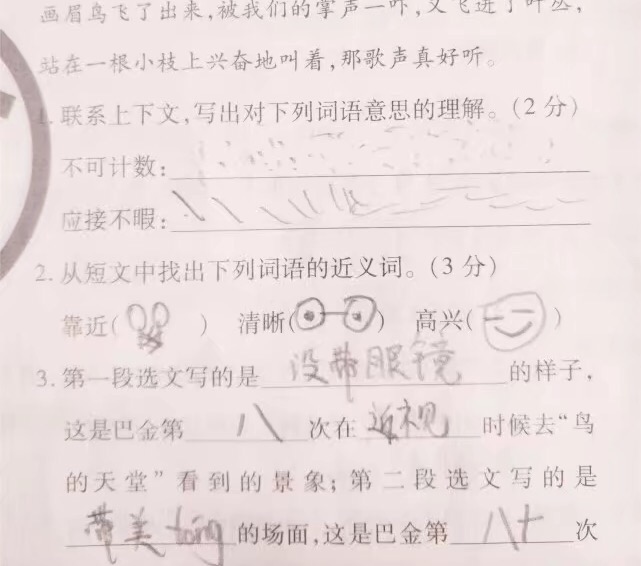 画眉鸟飞了出来,被我们的掌声一吓,又飞进了叶丛,
站在一根小枝上兴奋地叫着,那歌声真好听。
1.联系上下文,写出对下列词语意思的理解。(2分)
不可计数:
应接不暇:
2.从短文中找出下列词语的近义词。(3分)
靠近( ) 清晰( ) 高兴( )
3.第一段选文写的是没带眼镜的样子,
这是巴金第八次在近视时候去“鸟
的天堂”看到的景象;第二段选文写的是
带美tong的场面,这是巴金第八十次